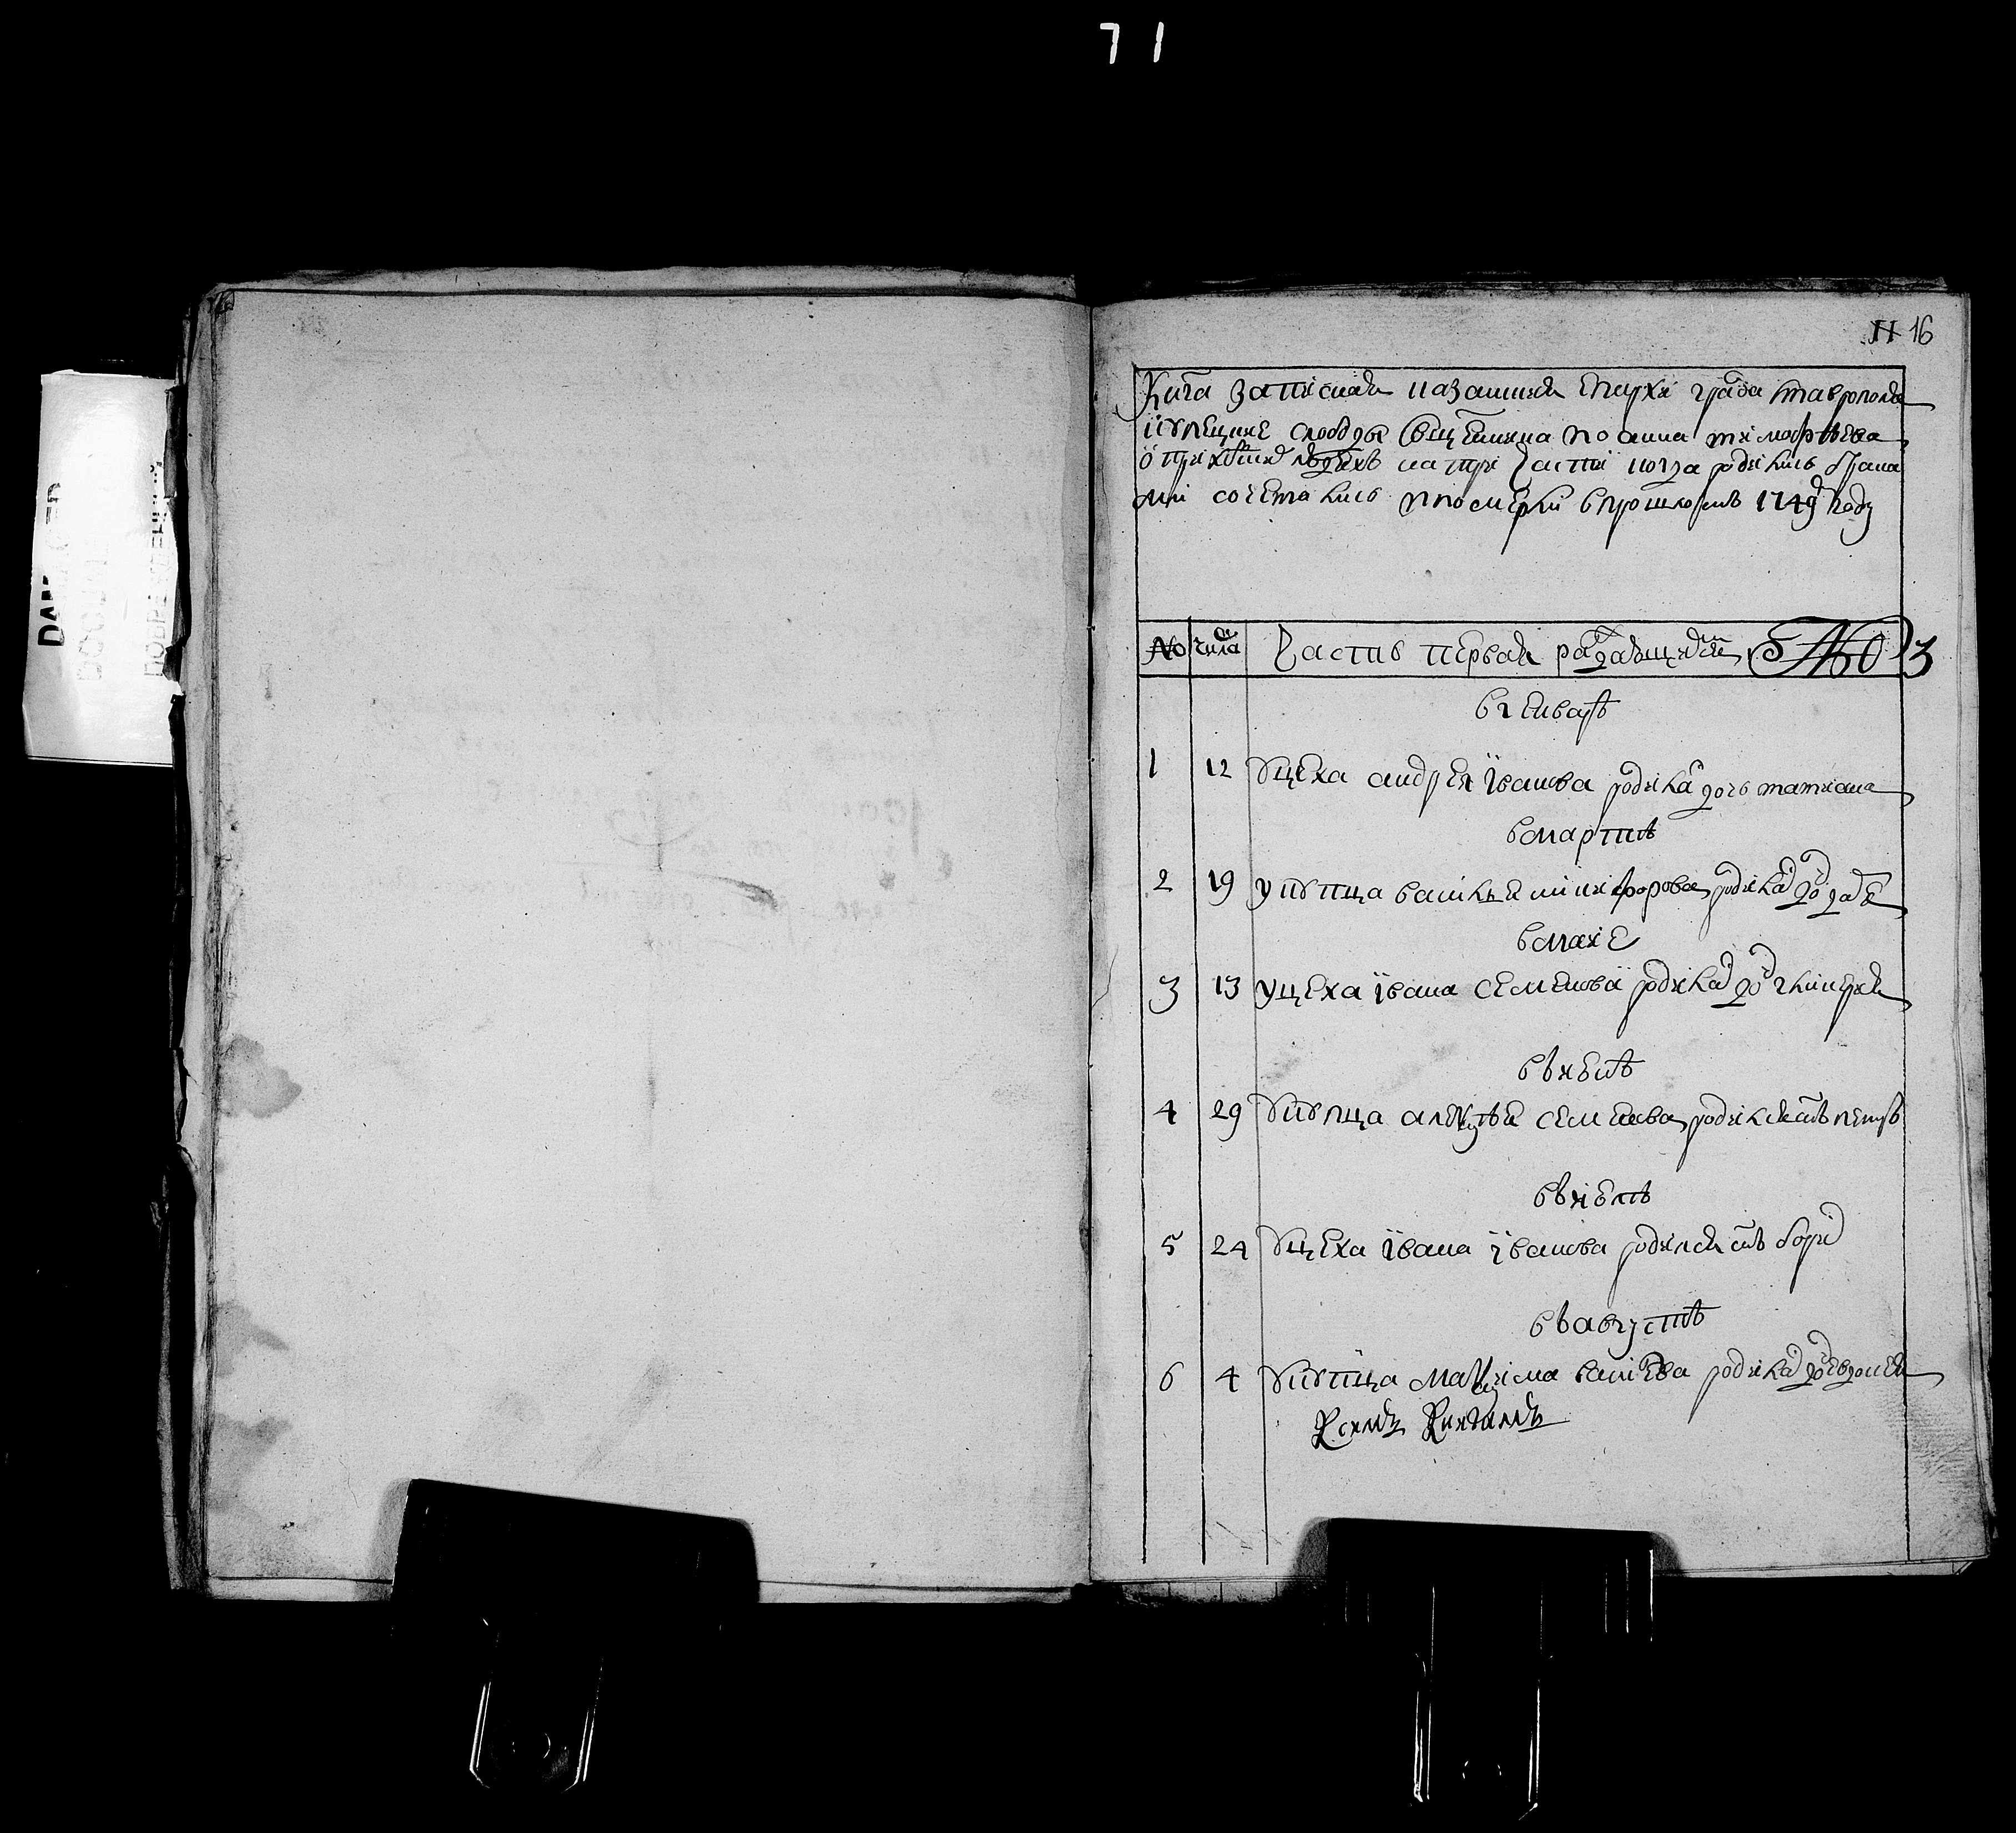 71
16
Книга записная казанския епархи града ставрополя
купецкие слободы священника иоанна тимофѣева
о прихоцких людехъ на три части когда родились браками
сочетались и померли в прошломъ 1749 году
№ числа Часть первая о раждающихся
в генварѣ
1 12 у цеха андрея иванова родилась дочь татиана
в мартѣ
2 19 у купца василья никифорова родилась дочь
в маие
3 13 у цеха ивана семенова родилась дочь гликерия
въ июнѣ
4 29 у купца алексѣя семенова родился сынъ петръ
въ июлѣ
5 24 у цеха ивана иванова родился сынъ борис
въ августѣ
6 4 у купца максима василева родилась дочь евдокея